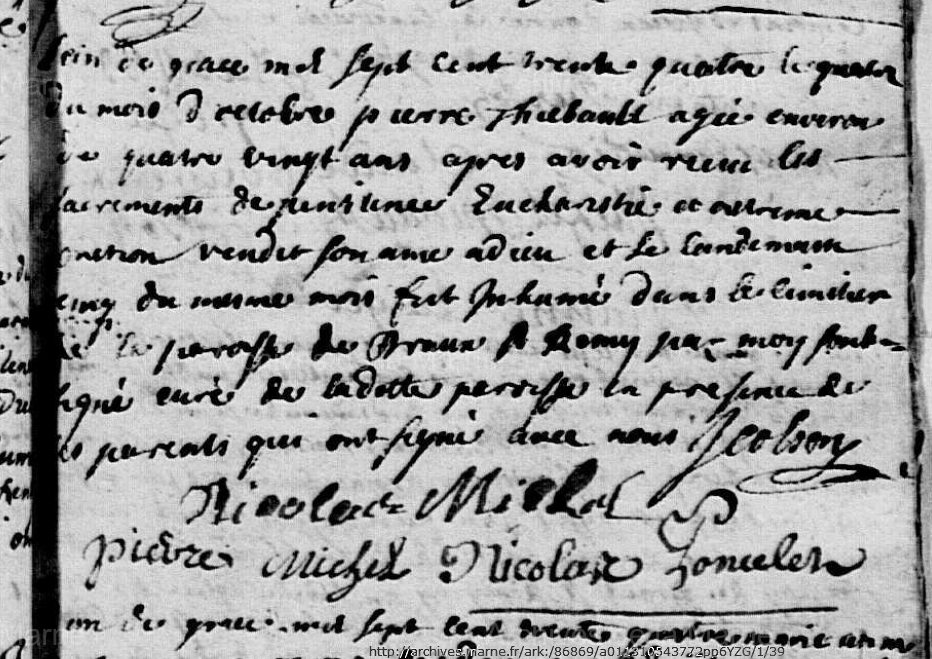 lan de grace mil sept cent trente quatre le quatre
du mois d octobre pierre Thiebault agée environ
de quatre vingt ans apres avoir recu les
sacrements de penitence Eucharistie et extreme
onction rendit son ame a dieu et le landemain
cinq du mesme mois fut Inhumé dans le cimitier
de la paroisse de Braux St Remy par moy soub-
signé curé de ladotte paroisse en presence de
ses parents qui ont signé avec nous Jcolson
Nicolas Michel
pierre Michel Nicolas
an de grace mil sept cent trente quatre marie
http://archives.marne.fr/ark:/86869/a011310543772pp6YZG/1/39